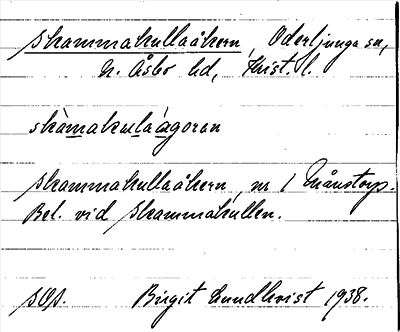 Skammakullaåkern, Oderljunga sn,
N. Åsbo hd, Krist. l.
skàmakulaágoran
Skammakullaåkern, nr 1 Månstorp.
Bel. vid Skammakullen.
SOA. Birgit Lundkvist 1938.